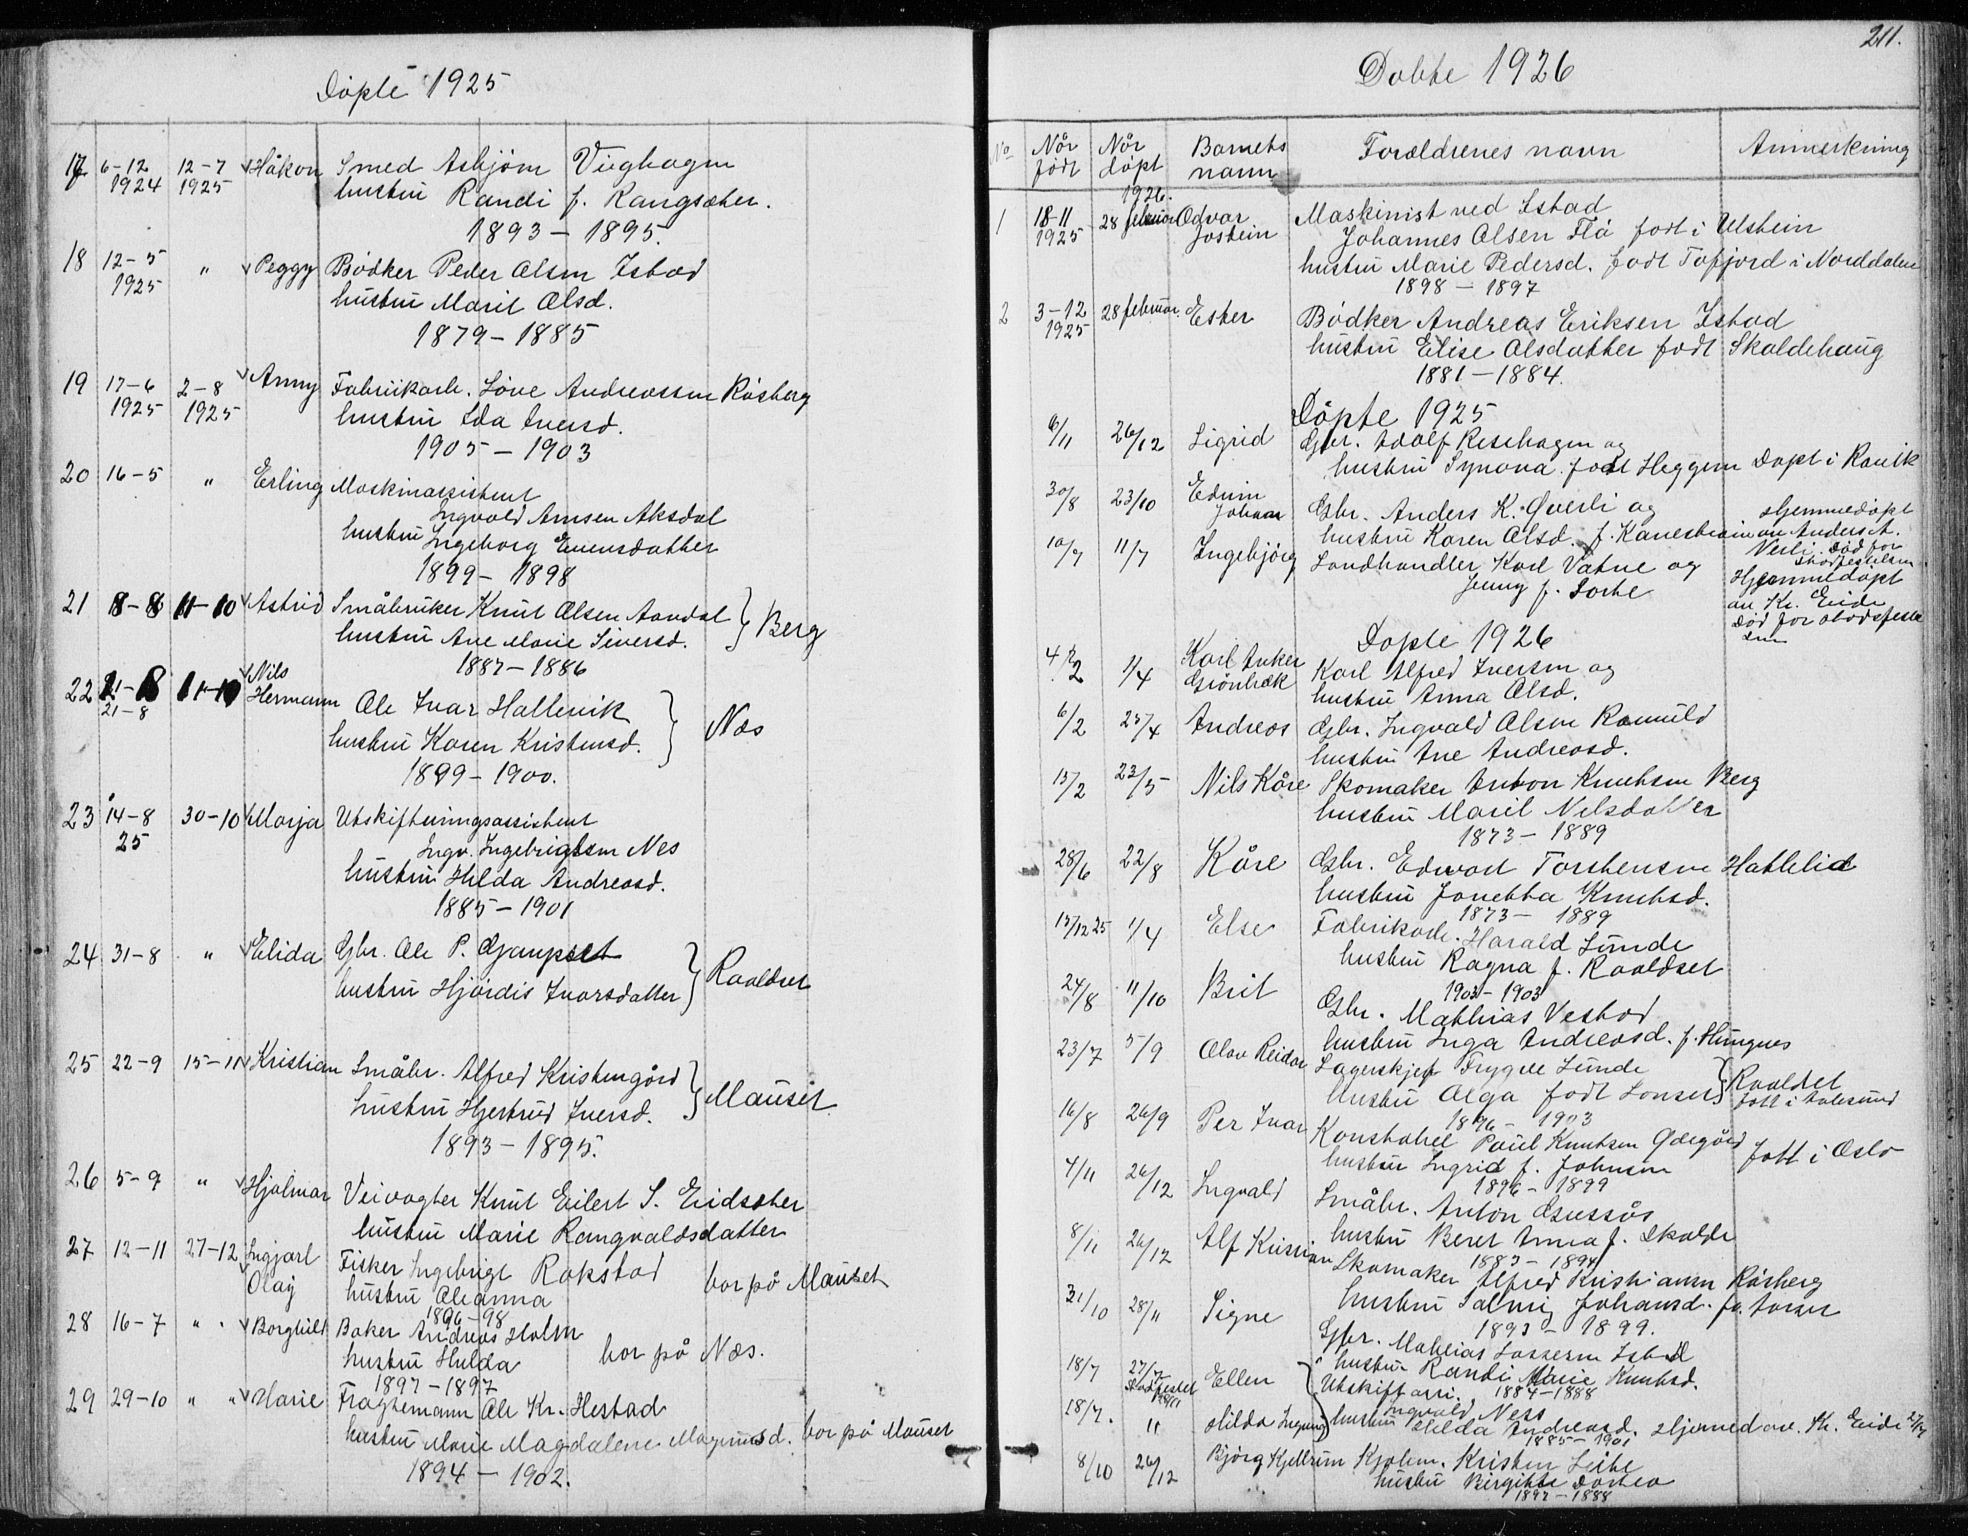 Döpte 1925
17 6-12 1924 12-7 1925 Håkon Smed Asbjörn Vieghagen
hustru Randi f. Rangsæter.
1893 - 1895.
18 12-5 1925 " Peggy Bödker Peder Olsen Istad
hustru Marit Olsd.
1879 - 1885
19 17-6 1925 2-8 1925 Anny Fabrikarb. Löve Andreassen Råsberg
hustru Ida Iversd.
1905 - 1903
20 16-5 " Erling Maskinassistent
Ingvald Arnsen Aksdal
hustru Ingeborg Evensdatter
1899 - 1898
21 8-8 11-10 Astrid Småbruker Knut Olsen Aandal } Berg
hustru Ane Marie Siversd.
1887 - 1886
22 21-8 21-8 11-10 Nils
Hermann Ole Ivar Hallenik } Næs
hustru Karen Kristensd.
1899 - 1900.
23 14-8 25 30-10 Marja Utskiftningsassistent
Ingv. Ingebrigtsen Nes
hustru Hilda Andreasd.
1885 - 1901
24 31-8 " Elida Gbr. Ole P. Gjaupset } Raaldset
hustru Hjördis Ivarsdatter
25 22-9 15-11 Kristian Småbr. Alfred Kristengård } Mauset
hustru Hjertrud Iversd.
1893 - 1895.
26 5-9 " Hjalmar Veivogter Knut Eilert S. Eidsæter
hustru Marie Rangvaldsdatter
27 12-11 27-12 Ingjarl
Olav Fisker Ingebrigt Rakstad bor på Mauset
hustru Oleanna
1896-98
28 16-7 " " Borghild Baker Andreas Holm
hustru Hulda bor på Næs.
1897 - 1897
29 29-10 " " Marie Fragtemann Ole Kr. Hestad
hustru Marie Magdalene Magnusd. bor på Mauset
1894 - 1902.
211.
Döbte 1926
No Når födt Når döpt Barnets navn Forældrenes navn Anmerkning
1926.
1 18-11 1925 28 februar Odvar
Jostein Maskinist ved Istad
Johannes Olsen Flö födt i Ulstein
hustru Marie Pedersd. födt Tafjord i Norddalen
1898 - 1897
2 3-12 1925 28 februar. Ester Bödker Andreas Eriksen Istad
hustru Elise Olsdatter födt Skaldehaug
1881 - 1884.
Döpte 1925
6/11 26/12 Sigrid Gbr. Adolf Reschagen og
hustru Synova født Heggem Döpt i Ravik
30/8 23/10 Edvin
Johan Gbr. Anders K. Qverli og Hjemmedöpt
hustru Karen Olsd. f. Kanestrøm av Anders A.
10/7 11/7 Ingebjörg Landhandler Karl Vatne og
Jenny f. Sorte Hjemmedöpt
av Kr. Eide
Död för stadsfeste
sen
Döpte 1926
4/2 1/4 Karl Anker
Grönbæk Karl Alfred Iversen og
hustru Anna Olsd.
6/2 25/4 Andreas Gbr. Ingvald Olsen Romuld
hustru Ane Andreasd.
15/2 23/5 Nils Kåre Skomaker Anton Knutsen Berg
hustru Marit Nilsdatter
1873 - 1889
28/6 22/8 Kåre Gbr. Edvart Torstensen Hattelid
hustru Jonetta Knutsd.
1873 - 1889
15/12 25 1/4 Else Fabrikarb. Harald Sunde
hustru Ragna f. Raaldset
1903 - 1903
24/8 11/10 Brit Gbr. Mathias Vestad
hustru Inga Andreasd. f. Hungnes
23/7 5/9 Olav Reidar Lagerskjef Trygve Sunde } Raaldset
hustru Olga født Lonset } födt i Aalesund
1896 - 1903
16/8 26/9 Per Ivar Konstabel Paul Knutsen Ödegård födt i Oslo
hustru Ingrid f. Johnsen
1896 - 1899
4/11 26/12 Ingvald Småbr. Anton Gussås
hustru Beret Anna f. Skalde
1883 - 1894
8/11 26/12 Alf Kristian Skomaker Alfred Kristiansen Råsberg
hustru Salmig Johansd.
1893 - 1899.
31/10 28/11 Signe Gbr. Mathias Lassesen Istad
hustru Randi Marie Knutsd.
1884 - 1888
18/7 27/7 Ellen { Utskift assi.
Ingvald Ness
18/7. " Hilda Ingunn } hustru Hilda Andreasd. Hjemmed av. Kr. Eide 27/7
1885 - 1901
8/10 26/12 Björg Kjellrun Kjøbm. Kristen Leite
hustru Birgitte Dortea
1892 - 1888